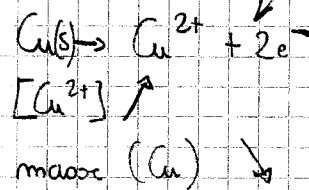 Cu(s) → Cu²⁺ + 2e⁻
[Cu²⁺] ↗
masse (Cu) ↘